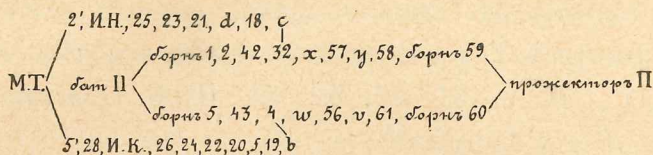 2', И.Н., 25, 23, 21, d, 18, c
борнъ 1, 2, 42, 32, x, 57, y, 58, борнъ 59
М.Т. бат II прожекторъ П
борнъ 5, 43, 4, w, 56, v, 61, борнъ 60
5', 28, И.К., 26, 24, 22, 20, 5, 19, b